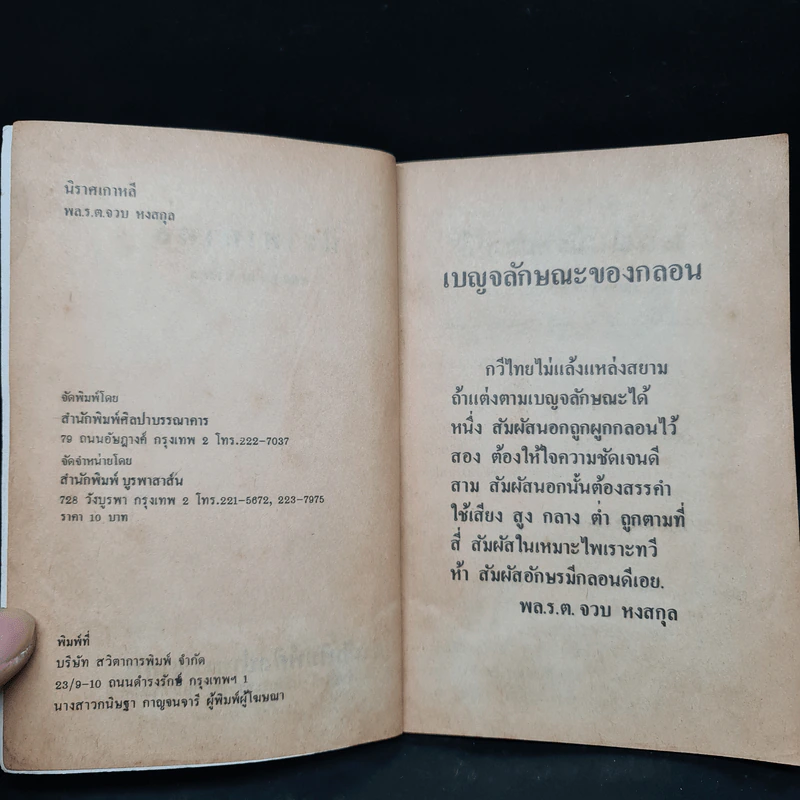 นิราศเกาหลี
พล.ร.ต.จวบ หงสกุล
จัดพิมพ์โดย
สำนักพิมพ์ศิลปาบรรณาคาร
79 ถนนอัษฎางค์ กรุงเทพ 2 โทร.222-7037
จัดจำหน่ายโดย
สำนักพิมพ์ บูรพาสาส์น
728 วังบูรพา กรุงเทพ 2 โทร.221-5672, 223-7975
ราคา 10 บาท
พิมพ์ที่
บริษัท สวิตาการพิมพ์ จำกัด
23/9-10 ถนนดำรงรักษ์ กรุงเทพฯ 1
นางสาวกนิษฐา กาญจนจารี ผู้พิมพ์ผู้โฆษณา
เบญจลักษณะของกลอน
กวีไทยไม่แล้งแหล่งสยาม
ถ้าแต่งตามเบญจลักษณะได้
หนึ่ง สัมผัสนอกถูกผูกกลอนไว้
สอง ต้องให้ใจความชัดเจนดี
สาม สัมผัสนอกนั้นต้องสรรคำ
ใช้เสียง สูง กลาง ต่ำ ถูกตามที่
สี่ สัมผัสในเหมาะไพเราะทวี
ห้า สัมผัสอักษรมีกลอนดีเอย.
พล.ร.ต. จวบ หงสกุล